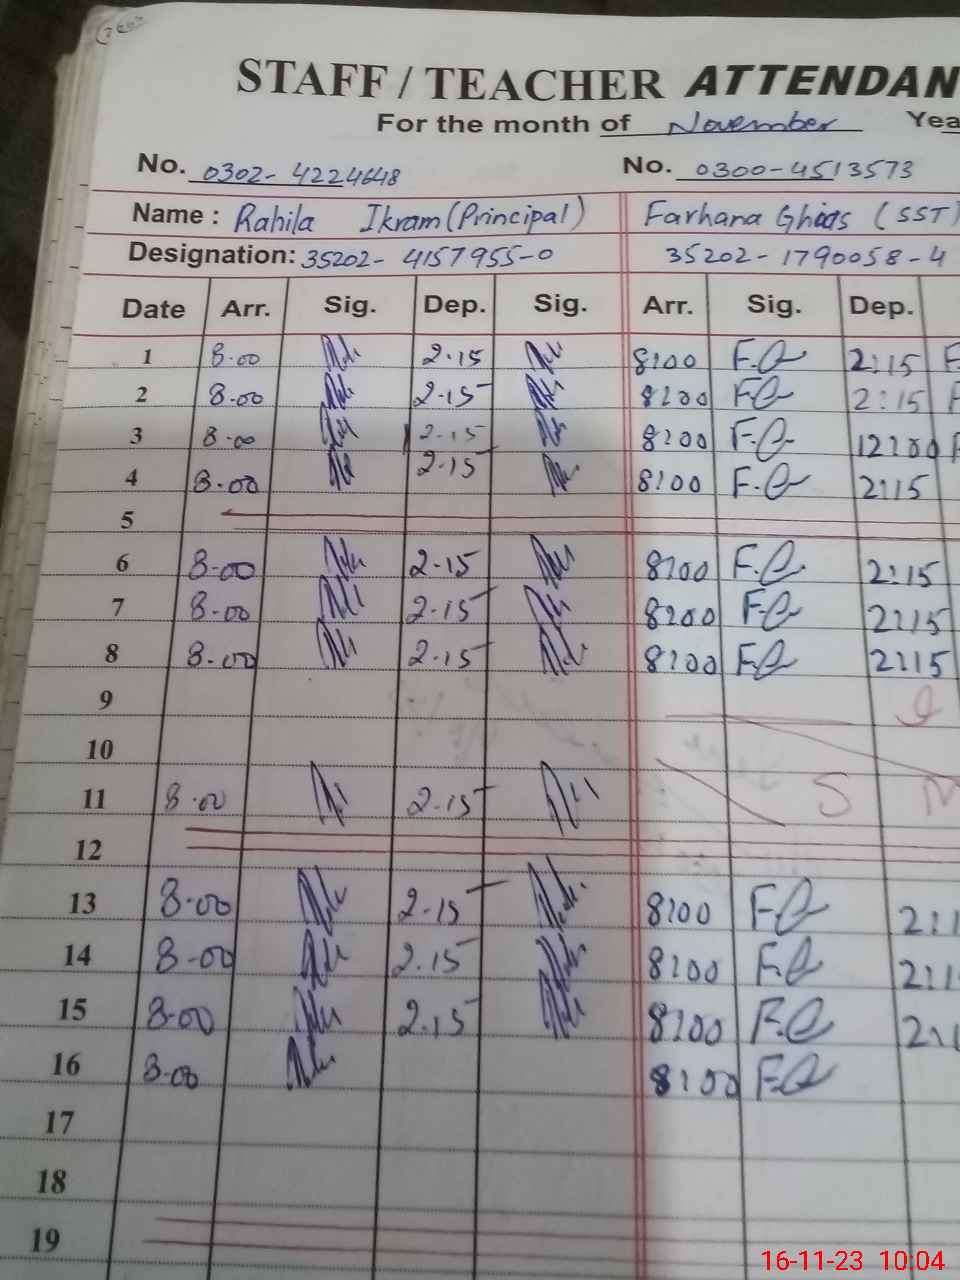 STAFF / TEACHER ATTENDAN
For the month of November Yea
No. 0302-4224648 No. 0300-4513573
Name : Rahila Ikram (Principal) Farhana Ghias (SST)
Designation: 35202-4157955-0 35202-1790058-4
Date Arr. Sig. Dep. Sig. Arr. Sig. Dep.
1 8.00 2.15 8:00 F.G 2:15 F
2 8.00 2.15 8:00 FG 2:15 F
3 8.00 2.15 8:00 F.G 12:00 F
4 8.00 2.15 8:00 F.G 2:15
5
6 8.00 2.15 8:00 F.G. 2:15
7 8.00 2.15 8:00 F.G 2:15
8 8.00 2.15 8:00 FG 2:15
9
10
11 8.00 2.15 S M
12
13 8.00 2.15 8:00 FG 2:1
14 8.00 2.15 8:00 F.G 2:1
15 8.00 2.15 8:00 F.G 2:1
16 8.00 8:00 F.G
17
18
19
16-11-23 10:04